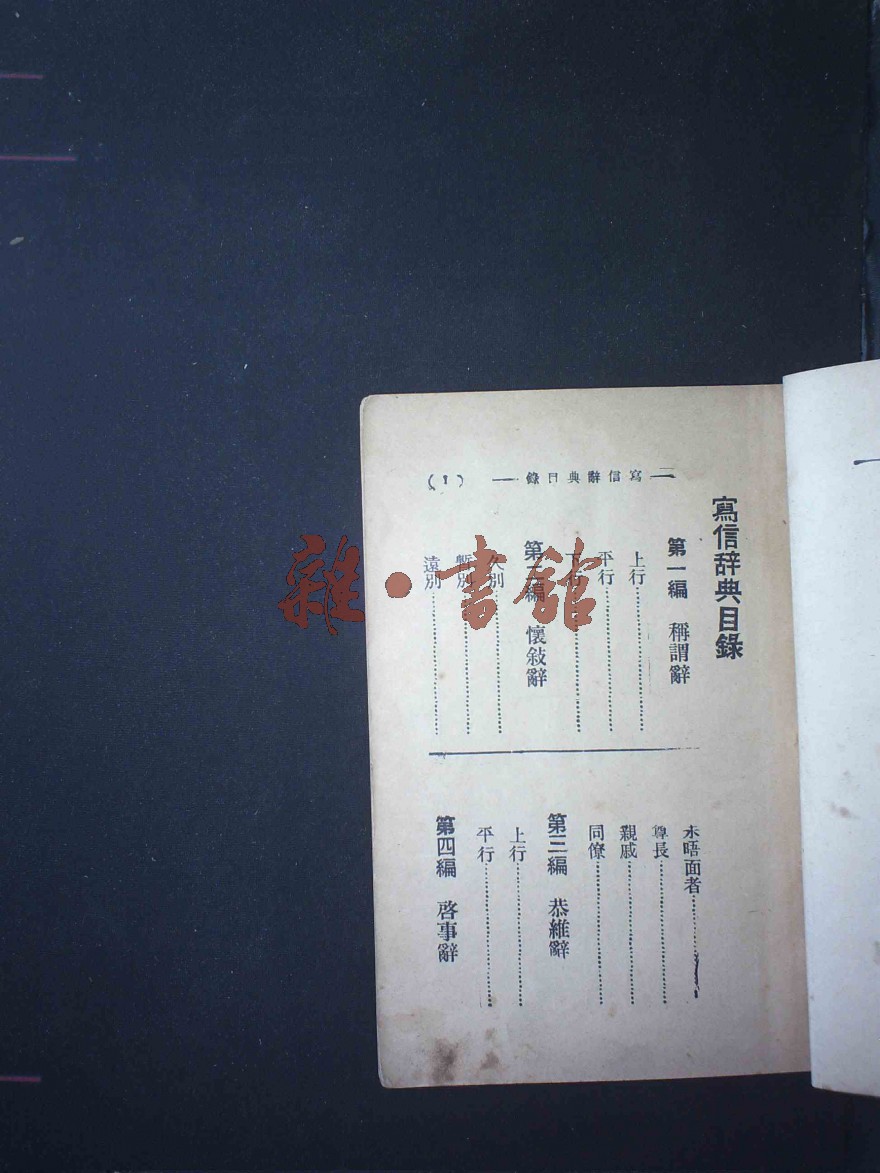 寫信辭典目錄
(1)
寫信辞典目錄
第一編 稱謂辭
上行
平行
下行
第二編 懷敍辭
久別
暫別
遠別
未晤面者
尊長
親戚
同僚
第三編 恭維辭
上行
平行
第四編 啓事辭
雜·書館